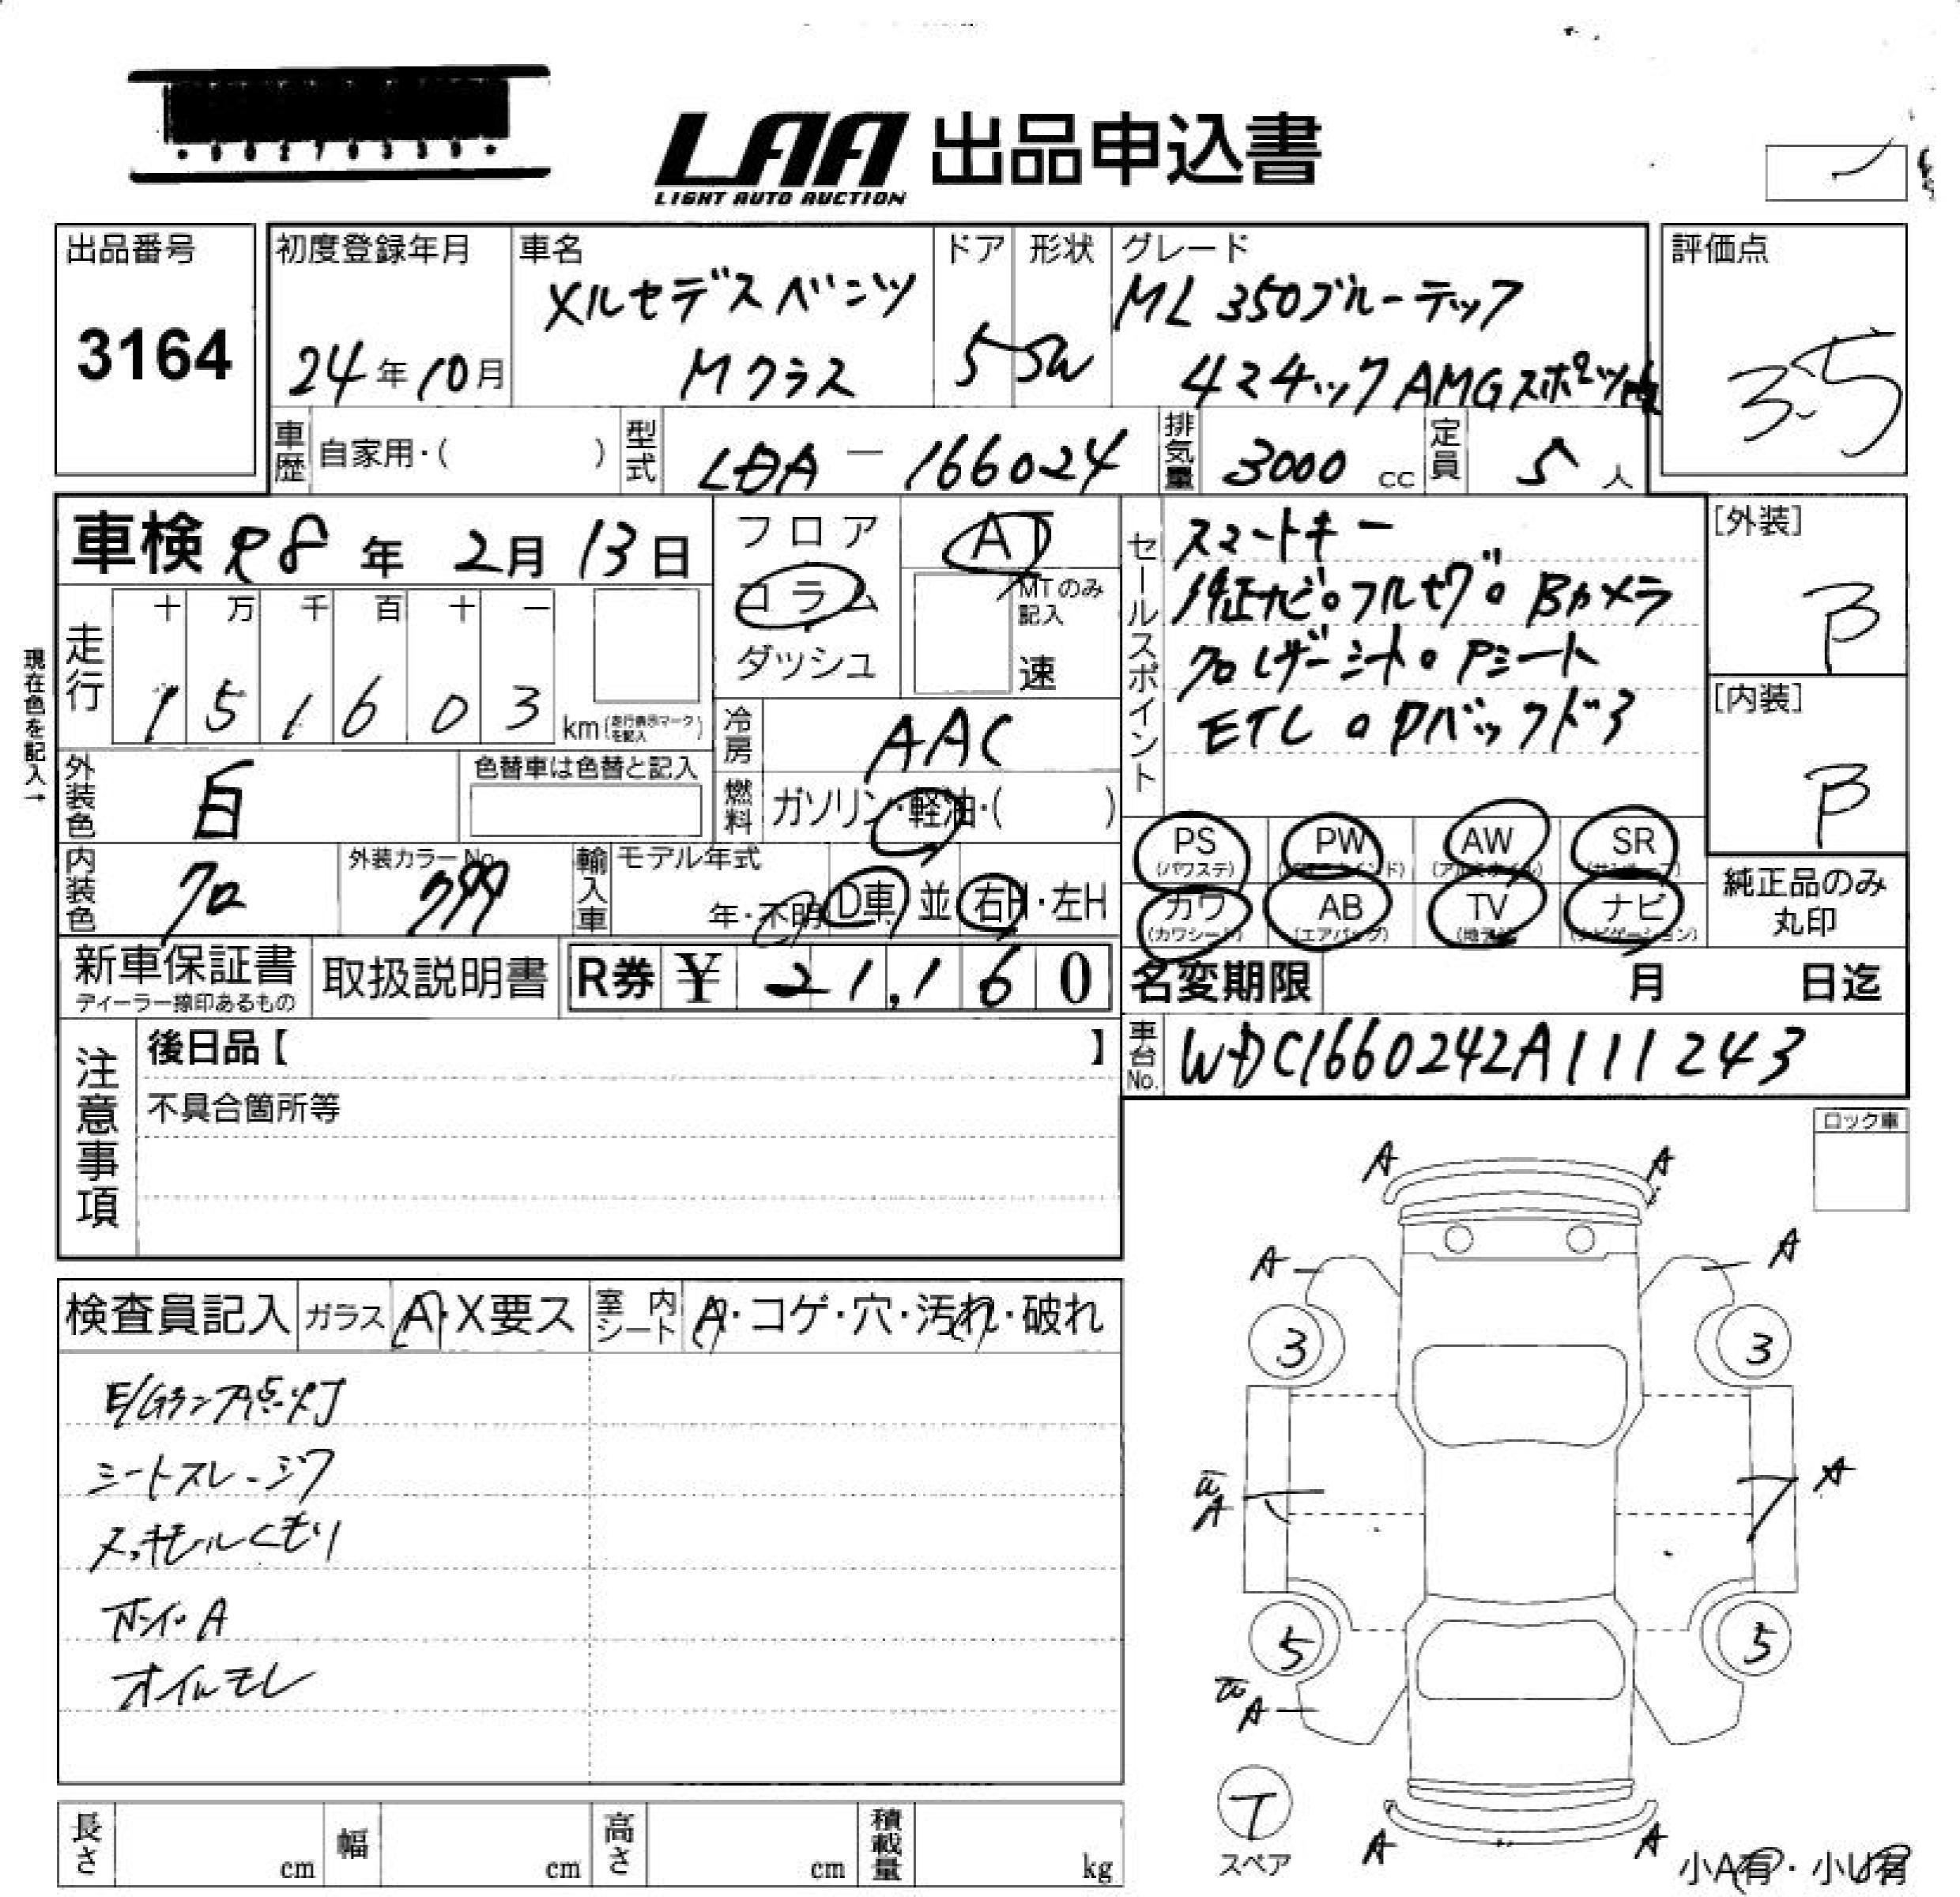 LAA 出品申込書
LIGHT AUTO AUCTION
出品番号
3164
初度登録年月
24年10月
車名
メルセデスベンツ
Mクラス
ドア
5
形状
SW
グレード
ML 350ブルーテック
4マチック AMGスポーツP
評価点
3.5
車歴
自家用・( )
型式
LDA － 166024
排気量
3000 cc
定員
5 人
車検 R8年 2月 13日
フロア
コラム
ダッシュ
AT
MTのみ
記入
速
現在色を記入→
走行
十 万 千 百 十 一
1 5 1 6 0 3 km (走行表示マークを記入)
冷房
AAC
外装色
白
色替車は色替と記入
燃料
ガソリン・軽油・( )
内装色
クロ
外装カラーNo.
799
輸入車
モデル年式
年・不明
D車・並
右H・左H
セールスポイント
スマートキー
純正ナビ。フルセグ。Bカメラ
クロレザーシート。Pシート
ETC。Pバックドア
[外装]
B
[内装]
B
PS
(パワステ)
PW
AW
SR
カワ
(カワシート)
AB
(エアバッグ)
TV
ナビ
(ナビゲーション)
純正品のみ
丸印
新車保証書
ディーラー捺印あるもの
取扱説明書
R券 ¥ 21,160
名変期限 月 日迄
車台No.
WDC1660242A111243
注意事項
後日品【 】
不具合箇所等
ロック車
検査員記入
ガラス
A・X要ス
室内
シート
A・コゲ・穴・汚れ・破れ
E/Gランプ点灯
シートスレ・シワ
メッキモールくもり
ホイールA
オイルモレ
A A
A A
3 3
A A
5 5
A
T
スペア
A A
小A有・小U有
長さ cm
幅 cm
高さ cm
積載量 kg